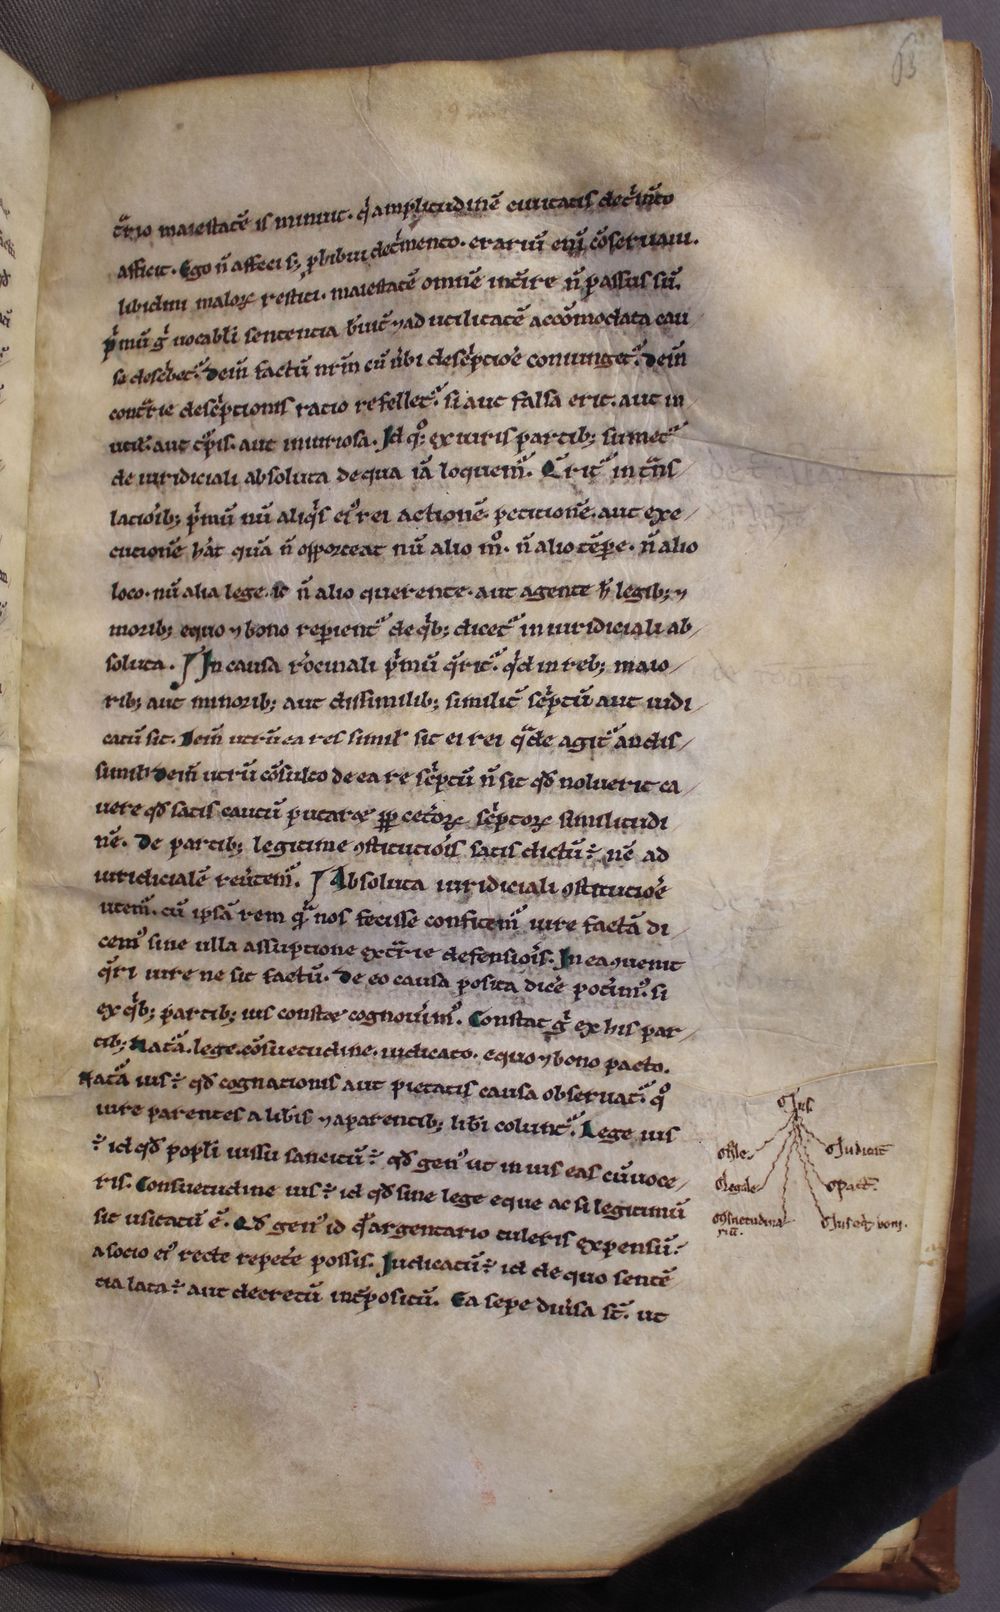 63
c̄rio maiestatē is minuit. q̇ amplitudinē ciuitatis det̉in̄to
afficit. Ego n̄ affeci s; phibui det̉mento. erariū eni᷒ cōseruaui.
libidini maloꝝ restiti. maiestatē omnē int̉ire n̄ passus sū.
p̉mū g̉ uocabli sentencia b̉uit̉ ⁊ ad utilitatē accōmodata cau
sa desc̉bet᷑. Dein̄ factū nrm̄ cū u̾bi desc̉ptiōe coniunget᷑. Dein̄
cont̉rie desc̉ptionis ratio refellet᷑. si aut falsa erit. aut in
util̾. aut t̉pis. aut iniuriosa. Id qº; ex iuris partib; sumet᷑
de iuridiciali absoluta de qua iā loquem᷑. Q̄rit᷑ in t̾ns
latiōib; p̉mū nū aliq̉s ei᷒ rei actionē. petitionē. aut exe
cutionē hāt quā n̄ opporteat nū alio mº. n̄ alio tēpe. n̄ alio
loco. nū alia lege. n̄ alio querente. aut agente h̾ legib; ⁊
morib; equo ⁊ bono repient᷑ de q̉b; dicet᷑ in iuridiciali ab
soluta. In causa rōcinali p̉mū q̄rit᷑. q̉d in reb; maio
rib; aut minorib; aut dissimilib; similit̾ sc̉ptū aut iudi
catū sit. Dein̄ utrū ea res simil̾ sit ei rei q̄ de agit᷑ an dis
simil̾. Dein̄ utrū cōsulto de ea re sc̉ptū n̄ sit qđ noluerit ca
uere qđ satis cautū putaret ꝓpt̾ cet̾oꝝ sc̉ptoꝝ similitudi
nē. De partib; legitime ꝯstitutiōis satis dictū ÷ nē ad
iuridicialē reu̾tem᷑. Absoluta iuridiciali ꝯstitutiōe
utem᷑. cū ip̄sā rem q̄ nos fecisse confitem᷑ iure factā di
cem᷒ sine ulla assūptione ext̾rie defensiōis. In ea ꝯuenit
q̄ri iure ne sit factū. De eo causa posita dic̾e pot̾im᷒. si
ex q̉b; partib; ius constet cognou̾im᷒. Constat g̉ ex his par
tib; Nat̄a. lege. cōsuetudine. iudicato. equo ⁊ bono pacto.
Nat̄a ius ÷ qđ cognationis aut pietatis causa obseruat᷑. qº
iure parentes a lib̾is ⁊ a parentib; lib̾i colunt᷑. Lege ius
÷ id qđ popl̾i iussu sancitū ÷ qđ gen᷒ ut in ius eas cū uoce
ris. Consuetudine ius ÷ id qđ sine lege eque ac si legitimū
sit usitatū ē. Qđ gen᷒ id q̄ argentario tuleris expensū ÷
a socio ei᷒ recte repet̾e possis. Iudicatū ÷ id de quo sentē
tia lata ÷ aut decretū int̾positū. Ea sepe diu̾sa st̄. ut
Ius
Nāle. Iudicat̄
legale. pact̄.
ꝯsuetudina
riū. Ius eq̉ ⁊ boni.